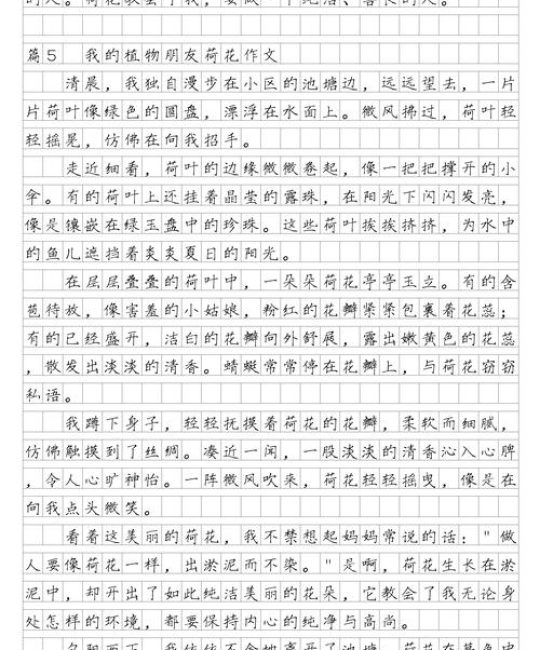 的人。荷花教会了我，要做一个纯洁、善良的人。
篇5　我的植物朋友荷花作文
清晨，我独自漫步在小区的池塘边，远远望去，一片
片荷叶像绿色的圆盘，漂浮在水面上。微风拂过，荷叶轻
轻摇晃，仿佛在向我招手。
走近细看，荷叶的边缘微微卷起，像一把把撑开的小
伞。有的荷叶上还挂着晶莹的露珠，在阳光下闪闪发亮，
像是镶嵌在绿玉盘中的珍珠。这些荷叶挨挨挤挤，为水中
的鱼儿遮挡着炎炎夏日的阳光。
在层层叠叠的荷叶中，一朵朵荷花亭亭玉立。有的含
苞待放，像害羞的小姑娘，粉红的花瓣紧紧包裹着花蕊；
有的已经盛开，洁白的花瓣向外舒展，露出嫩黄色的花蕊
，散发出淡淡的清香。蜻蜓常常停在花瓣上，与荷花窃窃
私语。
我蹲下身子，轻轻抚摸着荷花的花瓣，柔软而细腻，
仿佛触摸到了丝绸。凑近一闻，一股淡淡的清香沁入心脾
，令人心旷神怡。一阵微风吹来，荷花轻轻摇曳，像是在
向我点头微笑。
看着这美丽的荷花，我不禁想起妈妈常说的话："做
人要像荷花一样，出淤泥而不染。"是啊，荷花生长在淤
泥中，却开出了如此纯洁美丽的花朵，它教会了我无论身
处怎样的环境，都要保持内心的纯净与高尚。
夕阳西下，我依依不舍地离开了池塘。荷花在暮色中